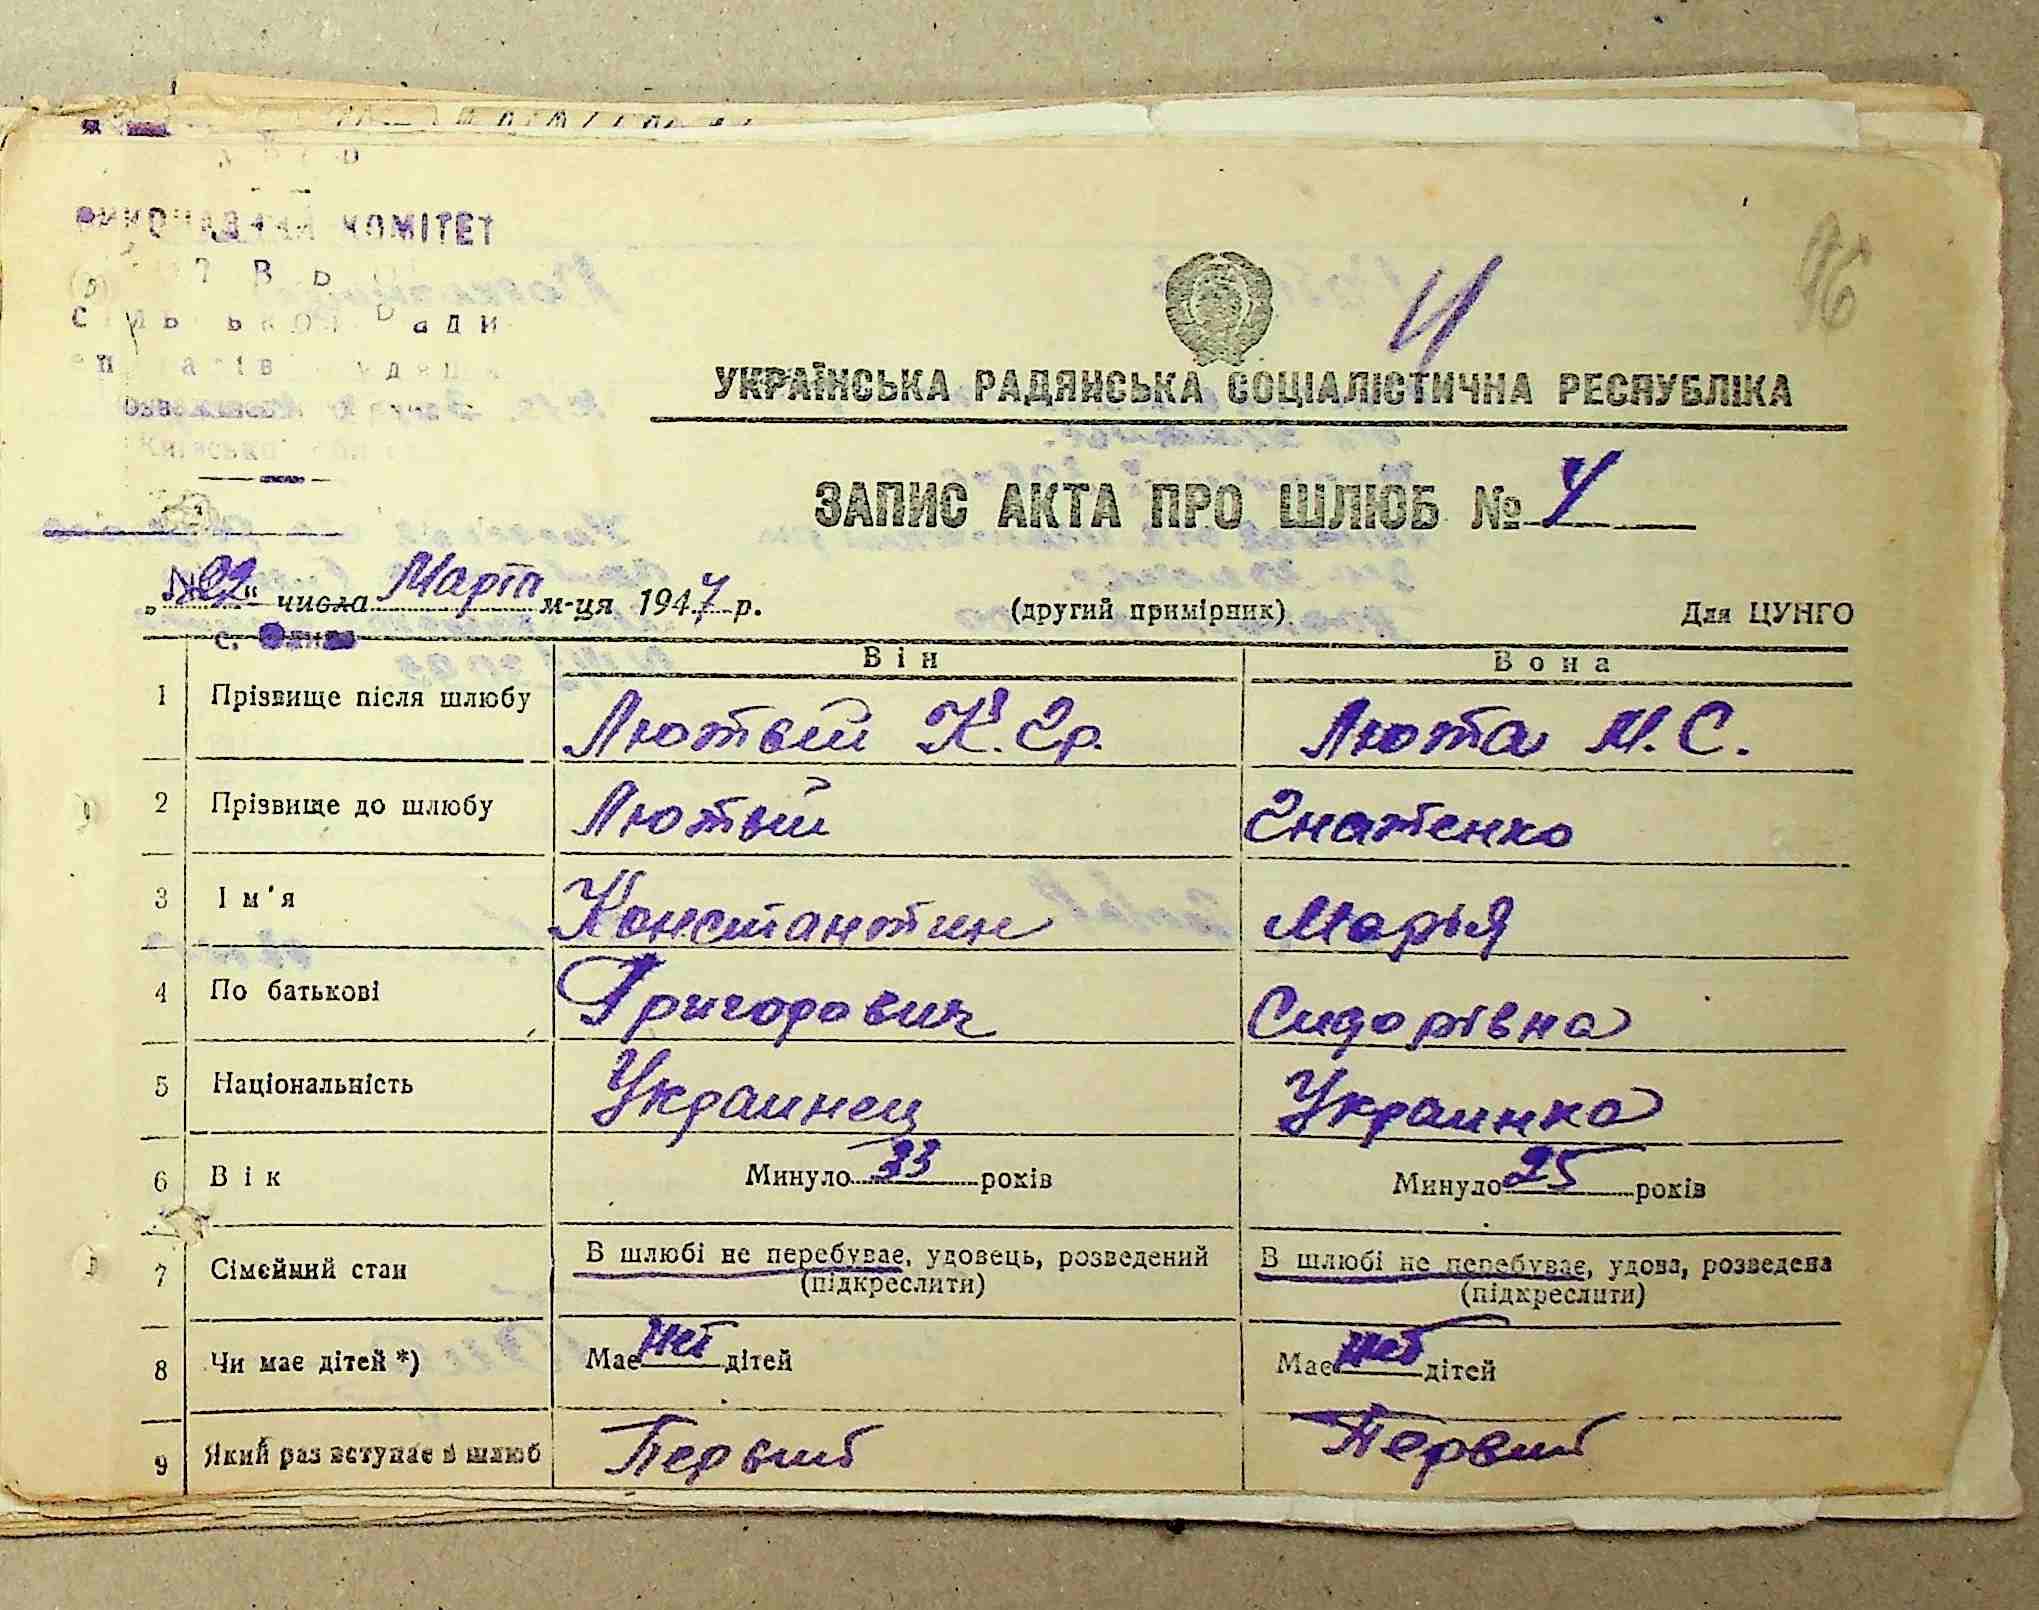 ВИКОНАВЧИЙ КОМІТЕТ
Сільської Ради
96
4
УКРАЇНСЬКА РАДЯНСЬКА СОЦІАЛІСТИЧНА РЕСПУБЛІКА
ЗАПИС АКТА ПРО ШЛЮБ № 4
„22“ числа Марта м-ця 1947 р. (другий примірник) Для ЦУНГО
Він Вона
1 Прізвище після шлюбу Лютый К. Гр. Люта М. С.
2 Прізвище до шлюбу Лютый Гнатенко
3 Ім'я Константин Марья
4 По батькові Григорович Сидорівна
5 Національність Украинец Украинка
6 Вік Минуло 33 років Минуло 25 років
7 Сімейний стан В шлюбі не перебуває, удовець, розведений В шлюбі не перебуває, удова, розведена
(підкреслити) (підкреслити)
8 Чи має дітей *) Має нет дітей Має нет дітей
9 Який раз вступає в шлюб Первый Первый